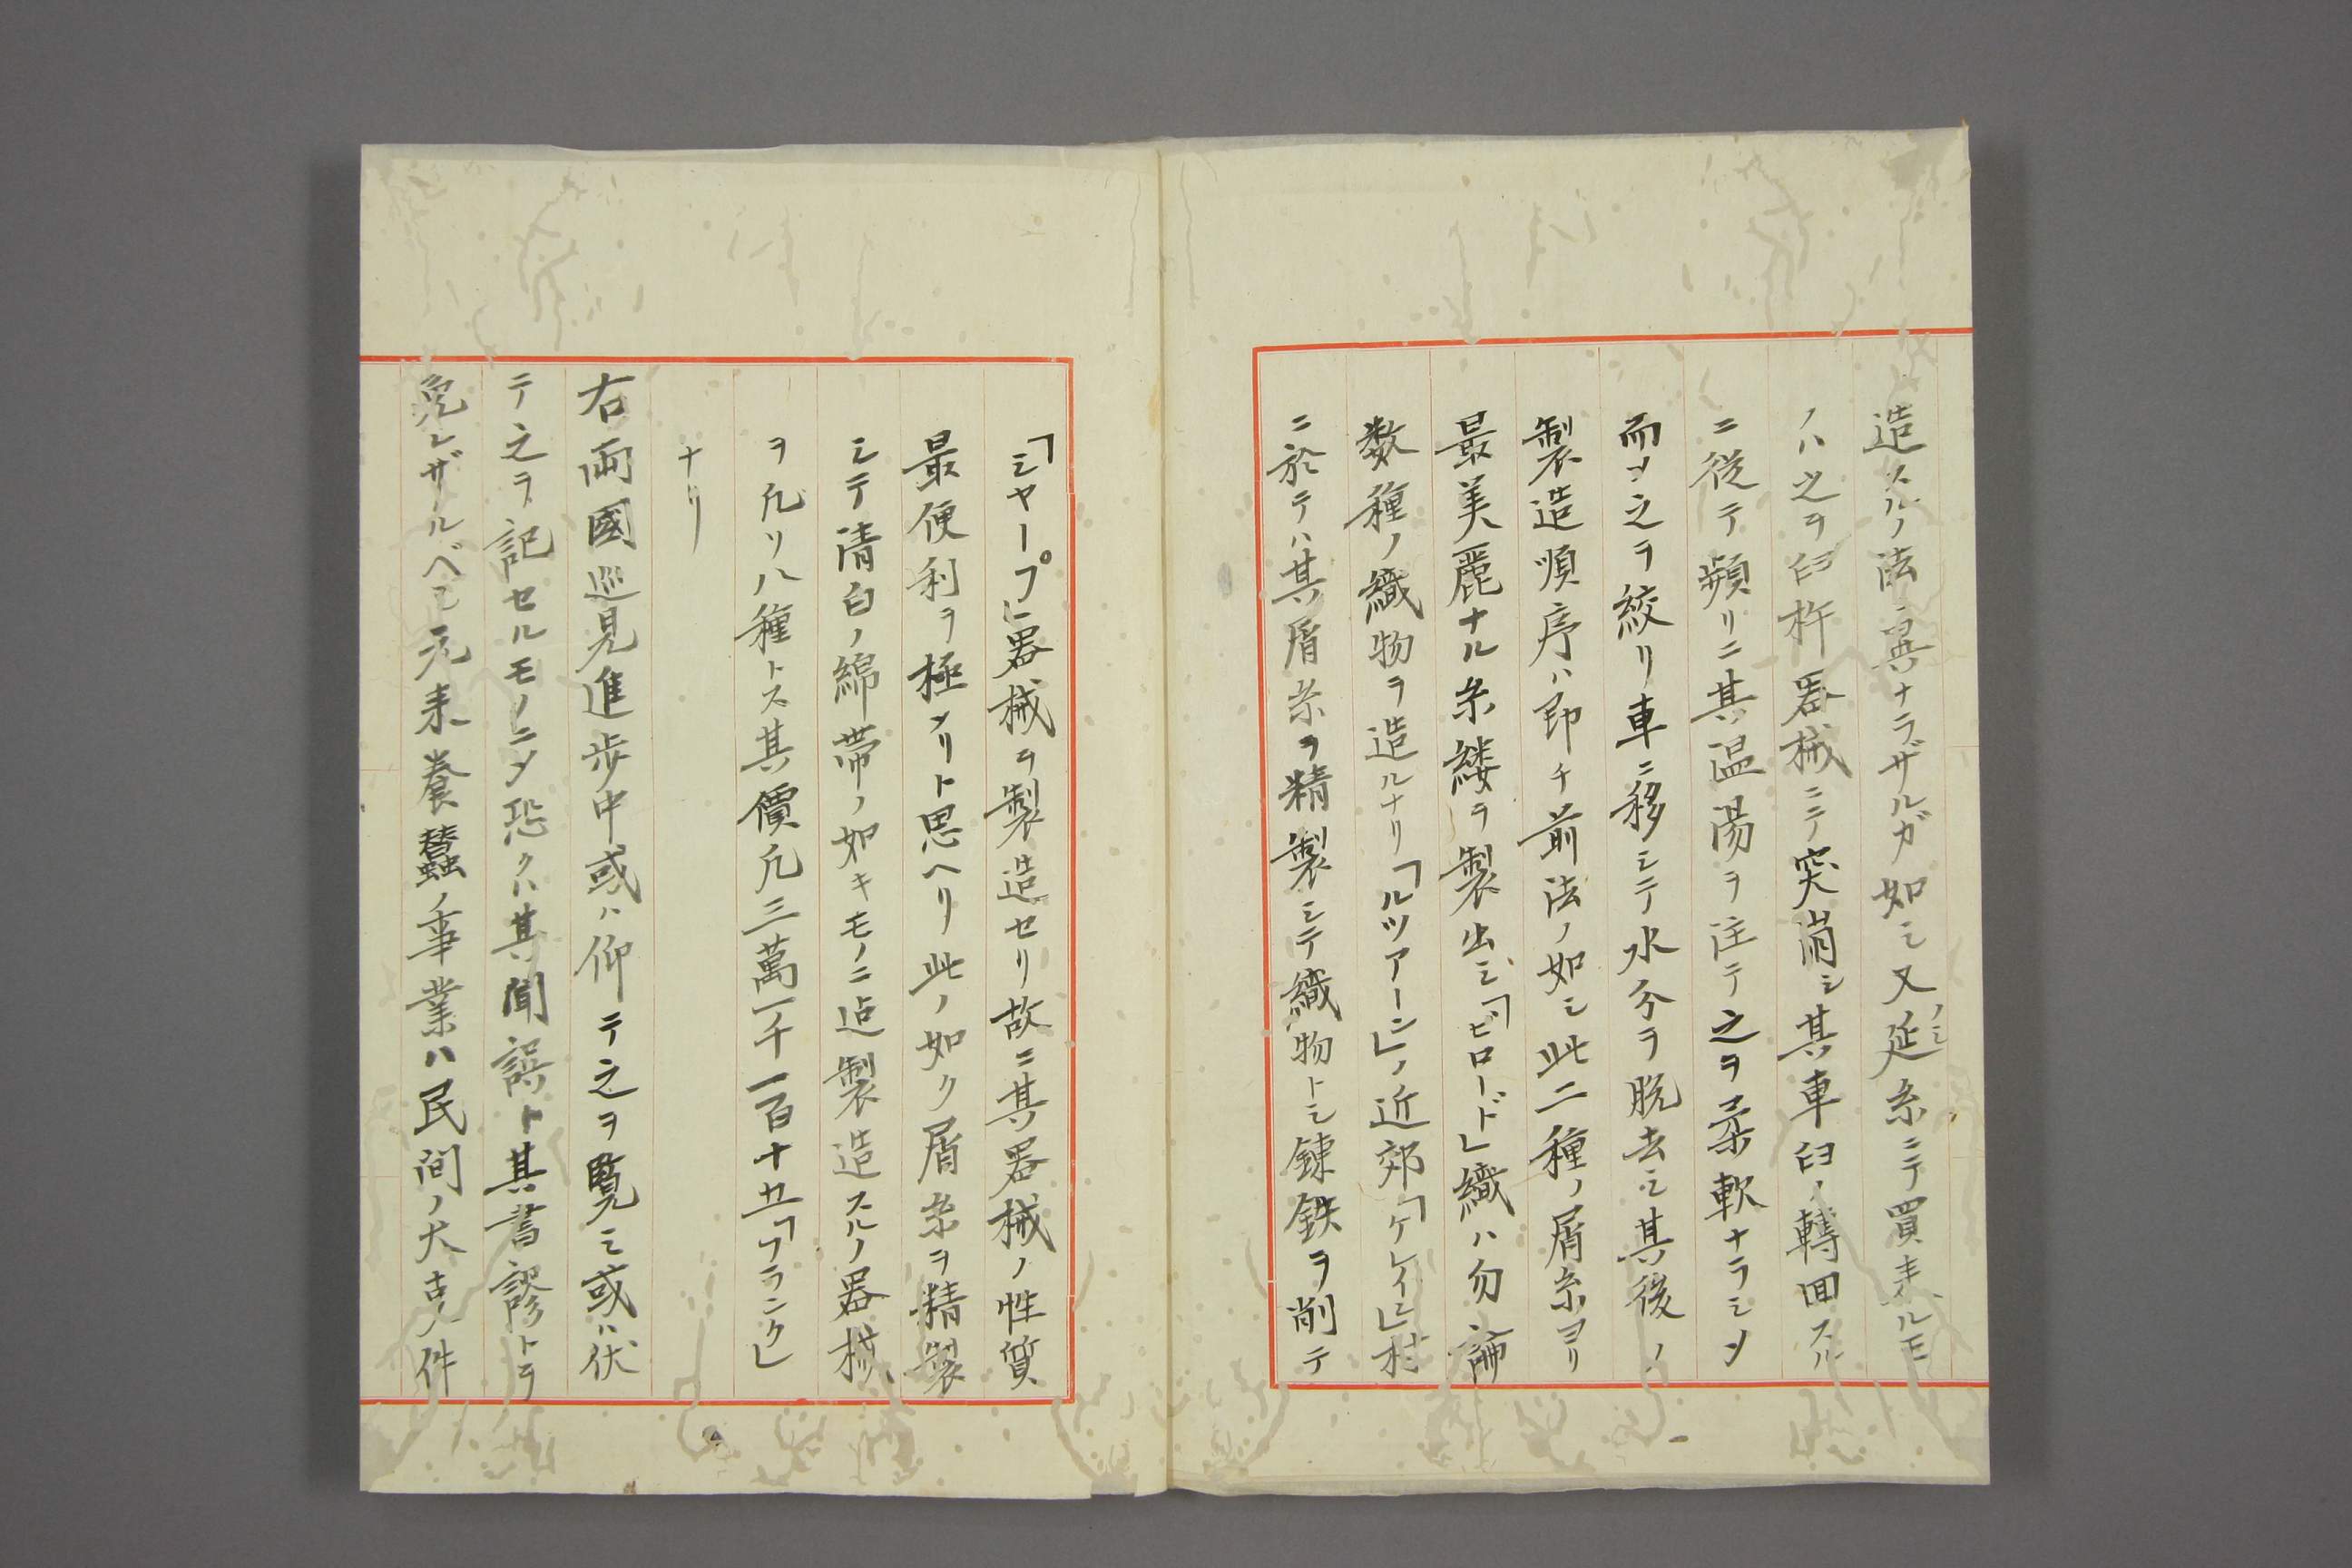 造スルノ法ニ異ナラザルガ如シ又延糸ニテ買来ルモ
ノシ
ノハ之ヲ臼杵器械ニテ突崩シ其車臼ノ轉回スル
ニ従テ頻リニ其温湯ヲ注テ之ヲ柔軟ナラシメ
而メ之ヲ絞リ車ニ移シテ水分ヲ脱去シ其後ノ
製造順序ハ即チ前法ノ如シ此二種ノ屑糸ヨリ
最美麗ナル糸縷ヲ製出シ「ビロード」織ハ勿論
数種ノ織物ヲ造ルナリ「ルツアーン」ノ近郊「ケレイン」村
ニ於テハ其屑糸ヲ精製シテ織物トシ錬鉄ヲ削テ
「シヤープ」器械ヲ製造セリ故ニ其器械ノ性質
最便利ヲ極メリト思ヘリ此ノ如ク屑糸ヲ精製
シテ清白ノ綿帯ノ如キモノニ迠製造スルノ器械
ヲ凡ソ八種トス其價凡三萬一千一百十五「フランク」
ナリ
右両國巡見進歩中或ハ仰テ之ヲ覽シ或ハ伏
テ之ヲ記セルモノニメ恐クハ其聞誤ト其書謬トヲ
免レザルベシ元来養蠶ノ事業ハ民間ノ大専件